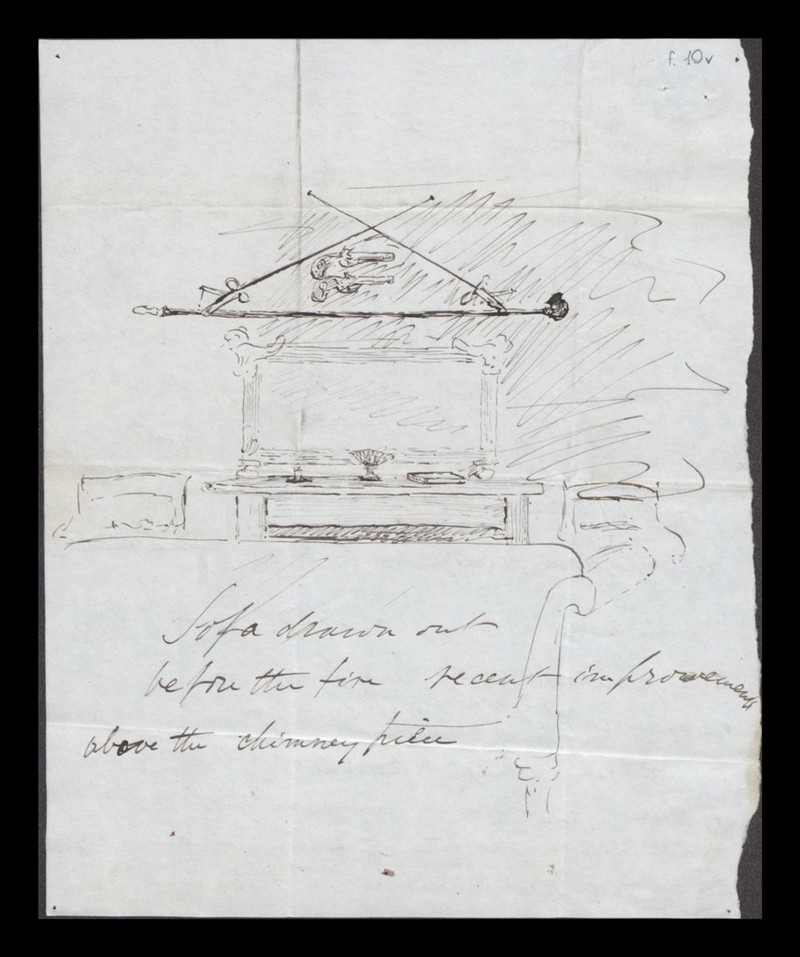 f. 10v
Sofa drawn out
before the fire recent improvement
above the chimney piece